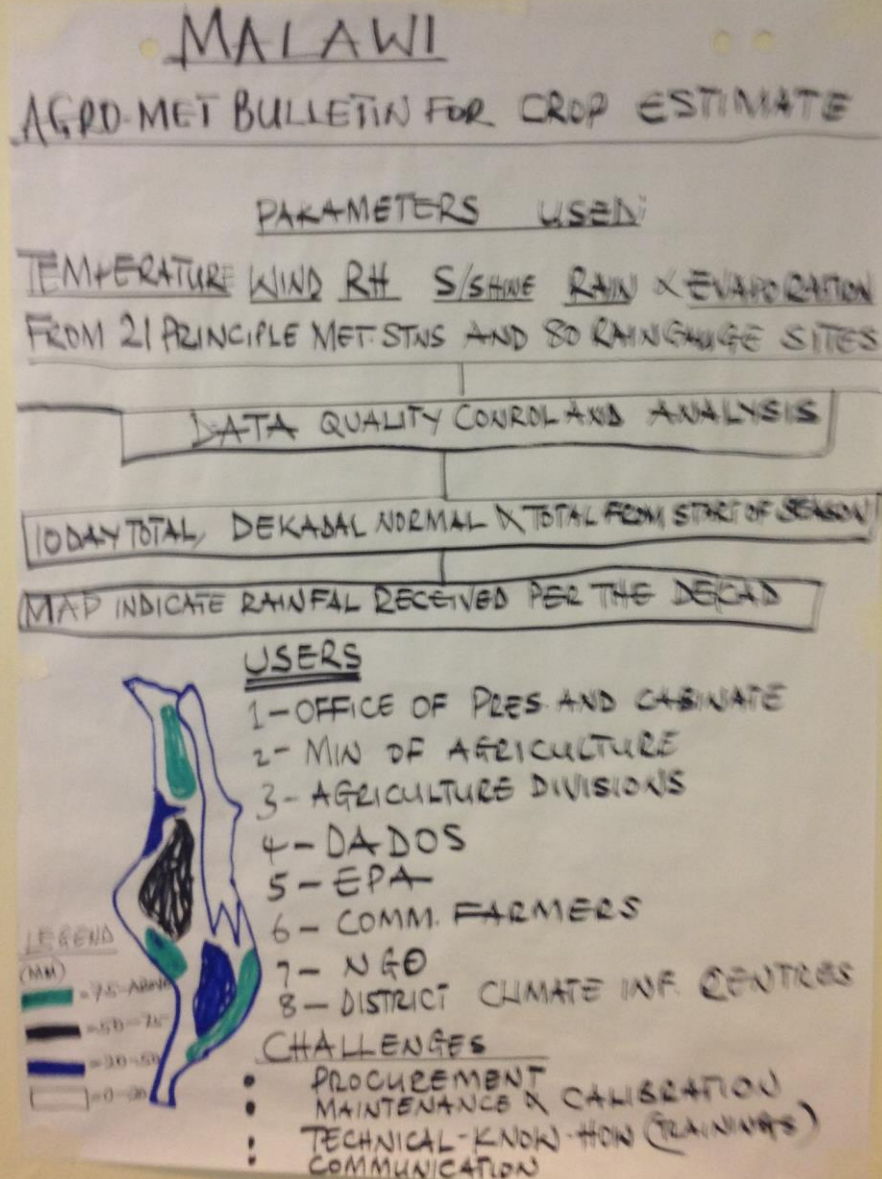 MALAWI
AGRO-MET BULLETIN FOR CROP ESTIMATE
PARAMETERS USED:
TEMPERATURE WIND RH S/SHINE RAIN & EVAPORATION
FROM 21 PRINCIPLE MET. STNS AND 80 RAINGAUGE SITES
DATA QUALITY CONROL AND ANALYSIS
10 DAY TOTAL, DEKADAL NORMAL & TOTAL FROM START OF SEASON
MAP INDICATE RAINFAL RECEIVED PER THE DEKAD
USERS
1-OFFICE OF PRES. AND CABINATE
2- MIN OF AGRICULTURE
3- AGRICULTURE DIVISIONS
4- DADOS
5- EPA
6- COMM. FARMERS
7- NGO
8- DISTRICT CLIMATE INF. CENTRES
LEGEND
(MM)
=75-ABOVE
=50-75
=20-50
=0-20
CHALLENGES
• PROCUREMENT
• MAINTENANCE & CALIBRATION
• TECHNICAL-KNOW-HOW (TRAININGS)
• COMMUNICATION